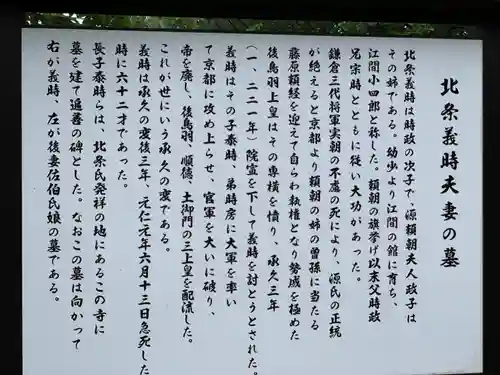 北条義時夫妻の墓
北条義時は時政の次子で、源頼朝夫人政子は
その姉である。幼少より江間の館に育ち、
江間小四郎と称した。頼朝の旗挙げ以来父時政
兄宗時とともに従い大功があった。
鎌倉三代将軍実朝の不慮の死により、源氏の正統
が絶えると京都より頼朝の姉の曽孫に当たる
藤原頼経を迎えて自らわ執権となり勢威を極めた
後鳥羽上皇はその専横を憤り、承久三年
(一、二二一年)院宣を下して義時を討とうとされた。
義時はその子泰時、弟時房に大軍を率い
て京都に攻め上らせ、官軍を大いに破り、
帝を廃し、後鳥羽、順徳、土御門の三上皇を配流した。
これが世にいう承久の変である。
義時は承久の変後三年、元仁元年六月十三日急死した
時に六十二才であった。
長子泰時らは、北条氏発祥の地にあるこの寺に
墓を建て遍善の碑とした。なおこの墓は向かって
右が義時、左が後妻佐伯氏娘の墓である。